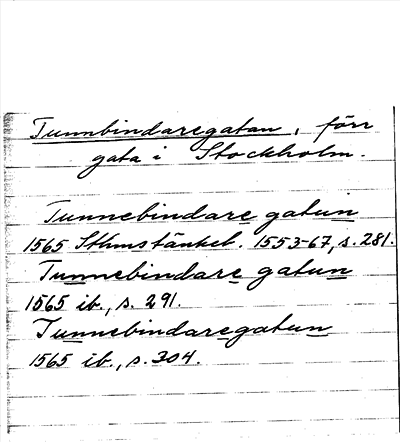 Tunnbindaregatan, förr
gata i Stockholm.
Tunnebindare gatun
1565 Sthmstänkeb. 1553-67, s. 281.
Tunnebindare gatun
1565 ib., s. 291.
Tunnebindaregatun
1565 ib., s. 304.